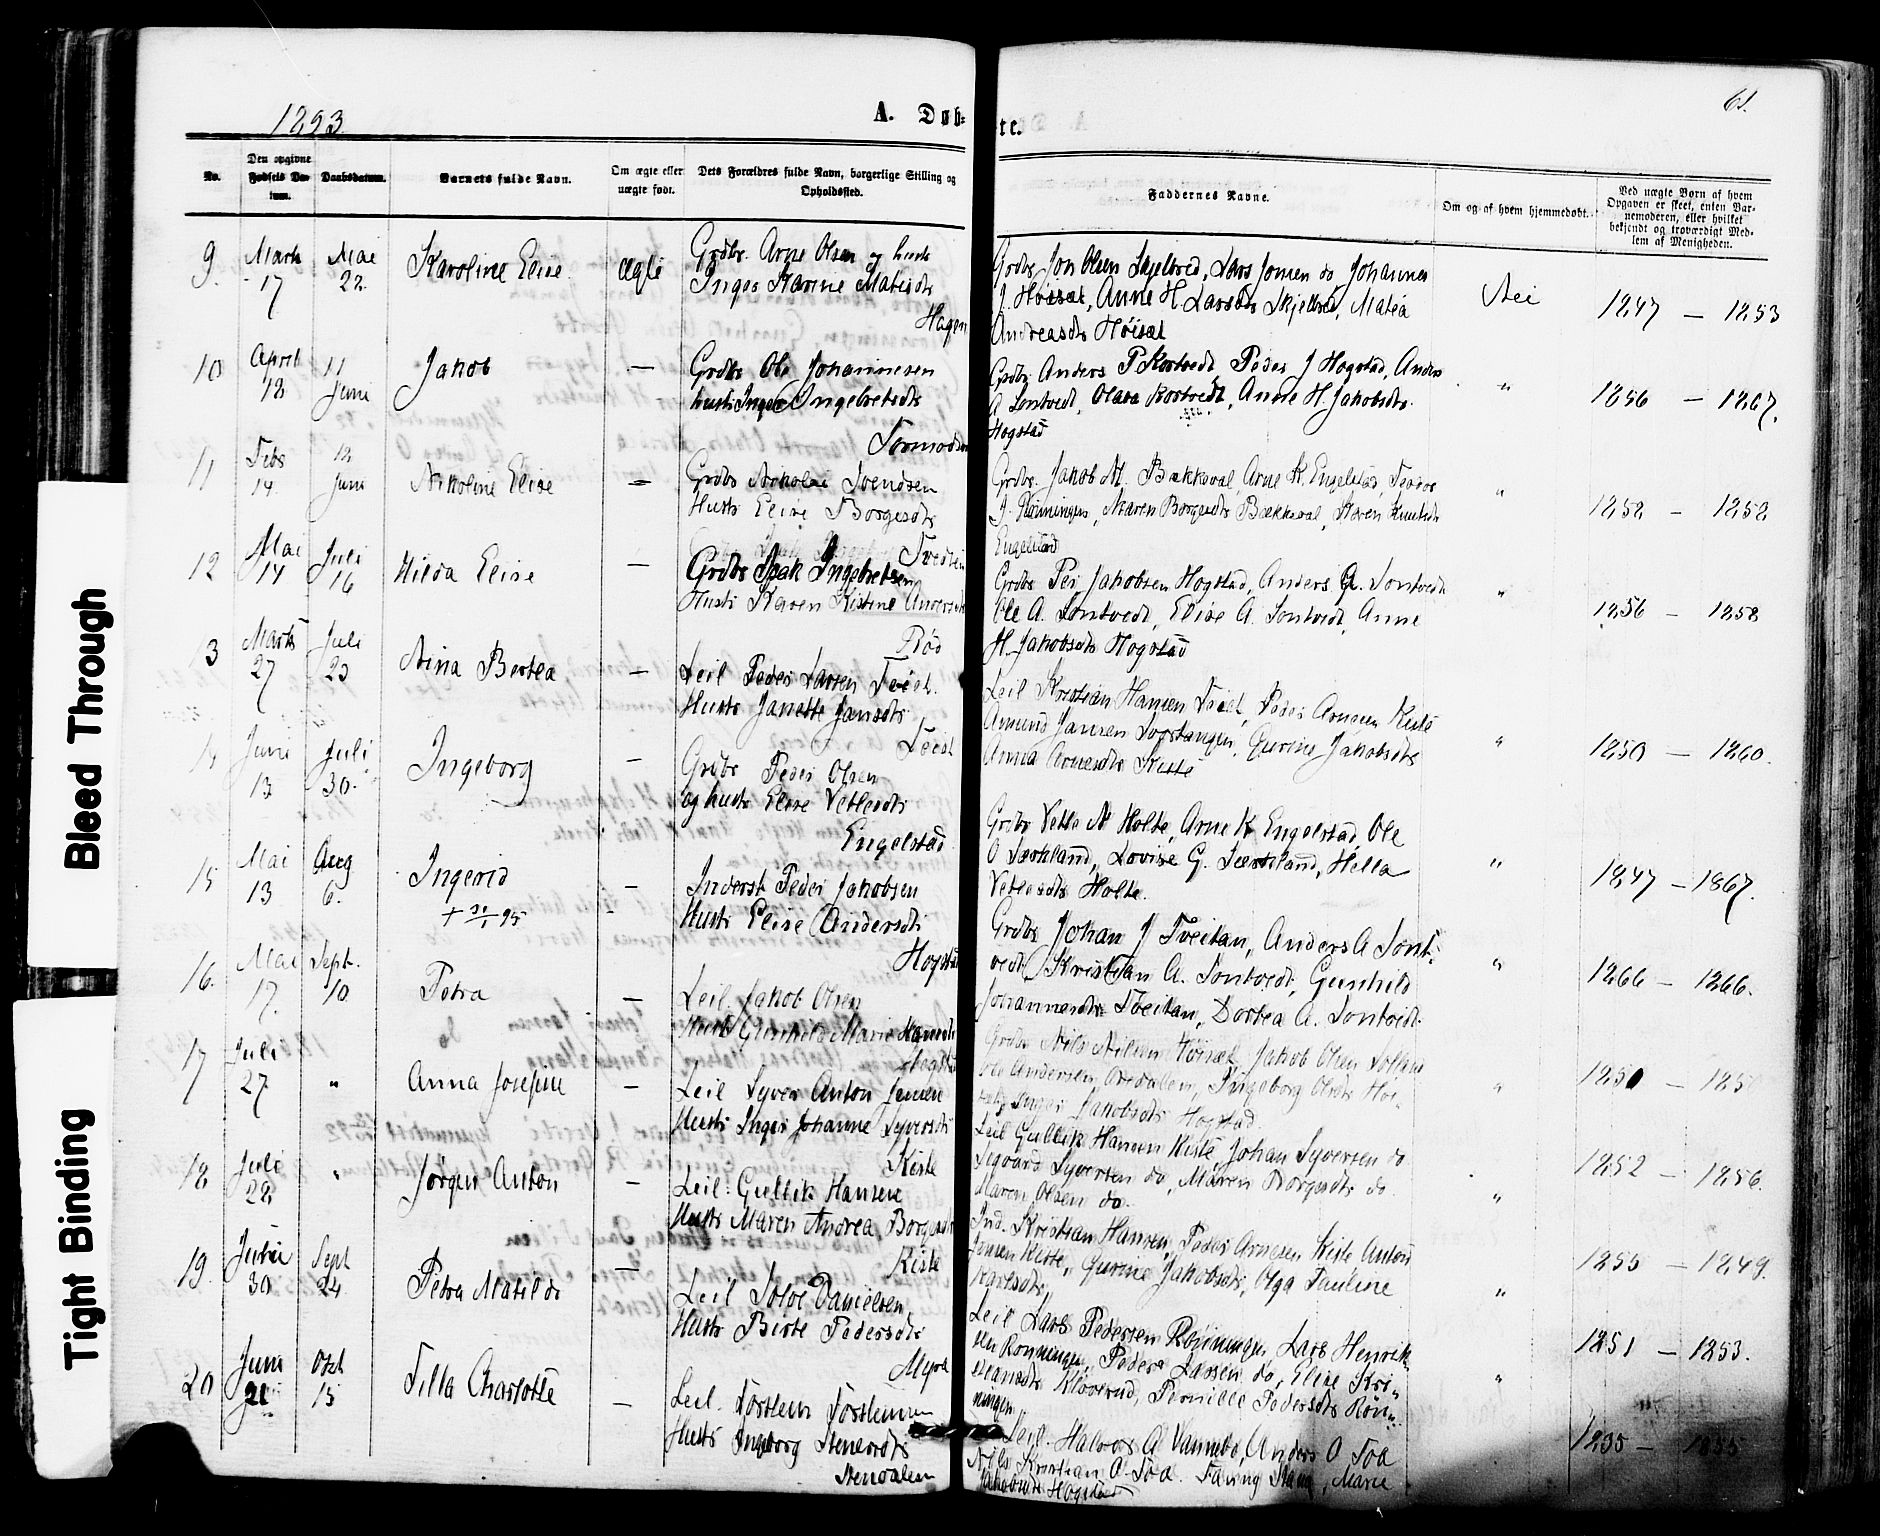 Bleed Through
Tight Binding
1893
A. Døb-
te.
61.
No.
Den opgivne Fødsels Datum.
Daabsdatum.
Barnets fulde Navn.
Om ægte eller uægte født.
Dets Forældres fulde Navn, borgerlige Stilling og Opholdssted.
Faddernes Navne.
Om og af hvem hjemmedøbt.
Ved uægte Børn af hvem Opgaven er skeet, enten Barnemoderen, eller hvilket bekjendt og troværdigt Medlem af Menigheden.
9. Marts 17 Mai 22. Karoline Elise ægte
Grdbr. Arne Olsen og hustr
Inger Karine Matisdtr
Hagen
Grdbr Jon Olsen Skjelbred, Lars Jonsen do Johannes
J. Høisæt, Anne H Larsdtr Skjelbred, Matea
Andreasdtr Høisæt
Nei
1847 — 1853
10 April 12 11 Juni Jakob —
Grdbr Ole Johannesen
hustr Inger Ingebretsdtr
Tormodsrø
Grdbr Anders P Kortvedt, Peder J Hogstad, Anders
A Sontvedt, Olava Kortvedt, Anne H. Jakobsdtr
Hogstad
"
1856 — 1867.
11 Febr 14. 18 Juni Nikoline Elise —
Grdbr Nikolai Svendsen
Hustr Elise Borgesdtr
Tvedten
Grdbr. Jakob M. Bækkevol, Arne K. Engelstad, Teodor
J. Rønningen, Maren Borgesdtr Bækkevol, Karen Knutsdtr
Engelstad
"
1852 — 1852
12 Mai 14 Juli 16 Hilda Elise —
Grdbr Isak Ingebretsen
Hustr Karen Kistine Andersdtr
Rød
Grdbr Per Jakobsen Hogstad, Anders A. Sontvedt
Ole A. Sontvedt, Elise A. Sontvedt, Anne
H. Jakobsdtr Hogstad
"
1856 — 1858
13 Marts 27 Juli 23 Nina Bertea —
Leil Peder Larsen Teiet.
Hustr Janette Jansdtr
Teiet
Leil Kristian Hansen Teiet, Peder Arnesen Kiste
Amund Jansen Sorstangen, Gurine Jakobsdtr
Anna Arnesdtr Kiste
"
1850 — 1860.
14 Juni 13 Juli 30. Ingeborg —
Grdbr Peder Olsen
og hustr Elise Vetlesdtr
Engelstad
Grdbr Vetle N Holte, Arne K Engelstad, Ole
O Særkland, Lovise G. Særkland, Hella
Vetlesdtr Holte.
"
1847 — 1867.
15 Mai 13 Aug 6. Ingerid —
Inderst Peder Jakobsen
Hustr Elise Andersdtr
Hogstad
Grdbr Johan J Tveitan, Anders A Sont-
vedt, Kristian A. Sontvedt, Gunhild
Johannesdtr Tveitan, Dortea A. Sontvedt.
"
1866 — 1866.
16. Mai 17. Sept. 10. Petra —
Leil. Jakob Olsen
Hustr Gunhild Marie Hansdtr
Hogstad
Grdbr Nils Nilsen Høisæt, Jakob Olsen
Ole Andersen Ordalen, Ingeborg Olsdtr Høi-
sæt, Inger Jakobsdtr Hogstad.
"
17 Juli 27 " Anna Josefine —
Leil Syver Anton Jensen
Hustr Inger Johanne Syversdtr
Kiste
Leil Gullik Hansen Kiste, Johan Syversen do
Segvard Syversen do, Maren Borgesdtr do
Maren Olsen do.
"
1852 — 1856.
18 Juli 28 " Jørgen Anton —
Leil: Gullik Hansen
Hustr Maren Andrea Borgesdtr
Kiste
Ind. Kristian Hansen, Peder Arnesen Kiste, Anton
Jensen Kiste, Gurine Jakobsdtr, Olga Pauline
Karlsdtr,
"
1855 — 1849.
19. Juni 30 Sept 24 Petra Matilde —
Leil Solve Danielsen,
Hustr Birte Pedersdtr
Myra
Leil Lars Pedersen Rønningen, Lars Henrik-
sen Rønningen, Peder Larsen do, Elise Kri-
stiansdtr Kloverud, Pernille Pedersdtr Røn-
ningen,
"
1851 — 1853.
20 Juni 21 Okt 15 Tilla Charlotte —
Leil. Torstein Torsteinsen
Hustr Ingeborg Stenersdtr
Stendalen
Leil. Halvor A Vannebo, Anders O Toa
Nils Kristian O Toa. Marie
Jakobsdtr Hogstad
1835 — 1855